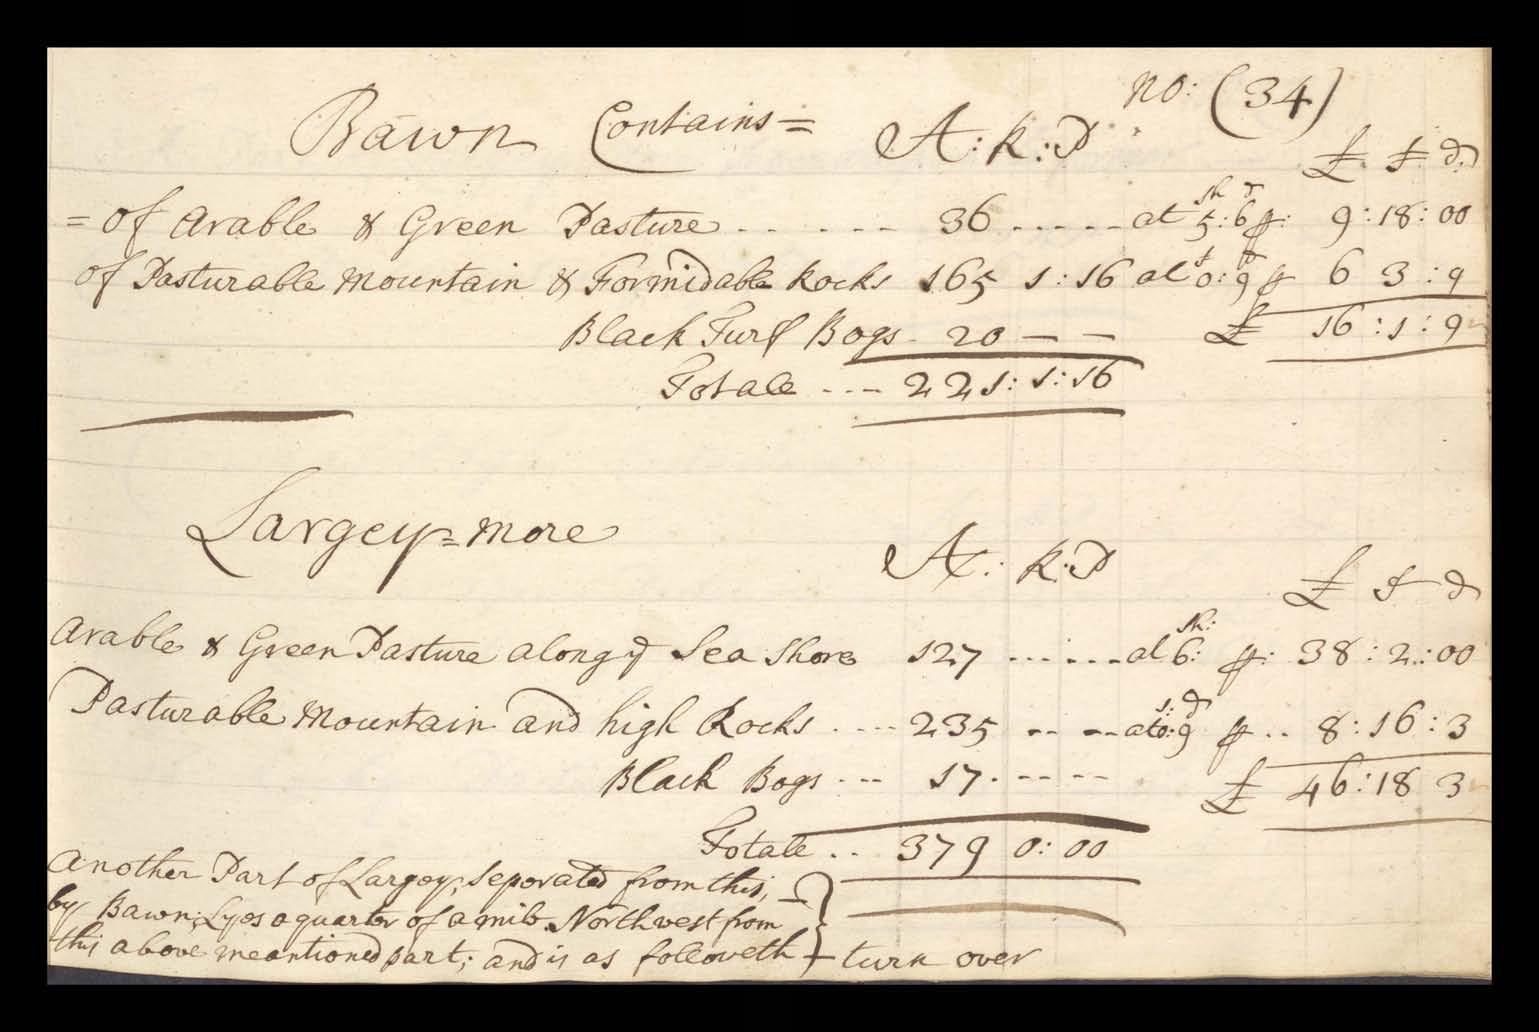 no: (34)
Bawn Contains = A: R: P
£ s d
= of Arable & Green Pasture - - - - - - 36 - - - - - at 5 sh: 6 d p: 9:18:00
of Pasturable Mountain & Formidable Rocks 165 1:16 at 0 s: 9 d p 6 3:9
Black Turf Bogs - 20 — — £ 16:1:9
Totale - - - - 221:1:16
Largey=more
A: R: P
£ s d
Arable & Green Pasture along ye Sea Shore 127 - - - - - - at 6 sh: p: 38:2:00
Pasturable Mountain and high Rocks - - - - 235 - - - - at 0 s: 9 d p - - 8:16:3
Black Bogs - - - 17 - - - - - £ 46:18 3
Totale - - 379 0:00
Another Part of Largey; Seporated from this;
by Bawn; Lyes a quarter of a mile Northwest from
this above meantioned part; and is as followeth turn over